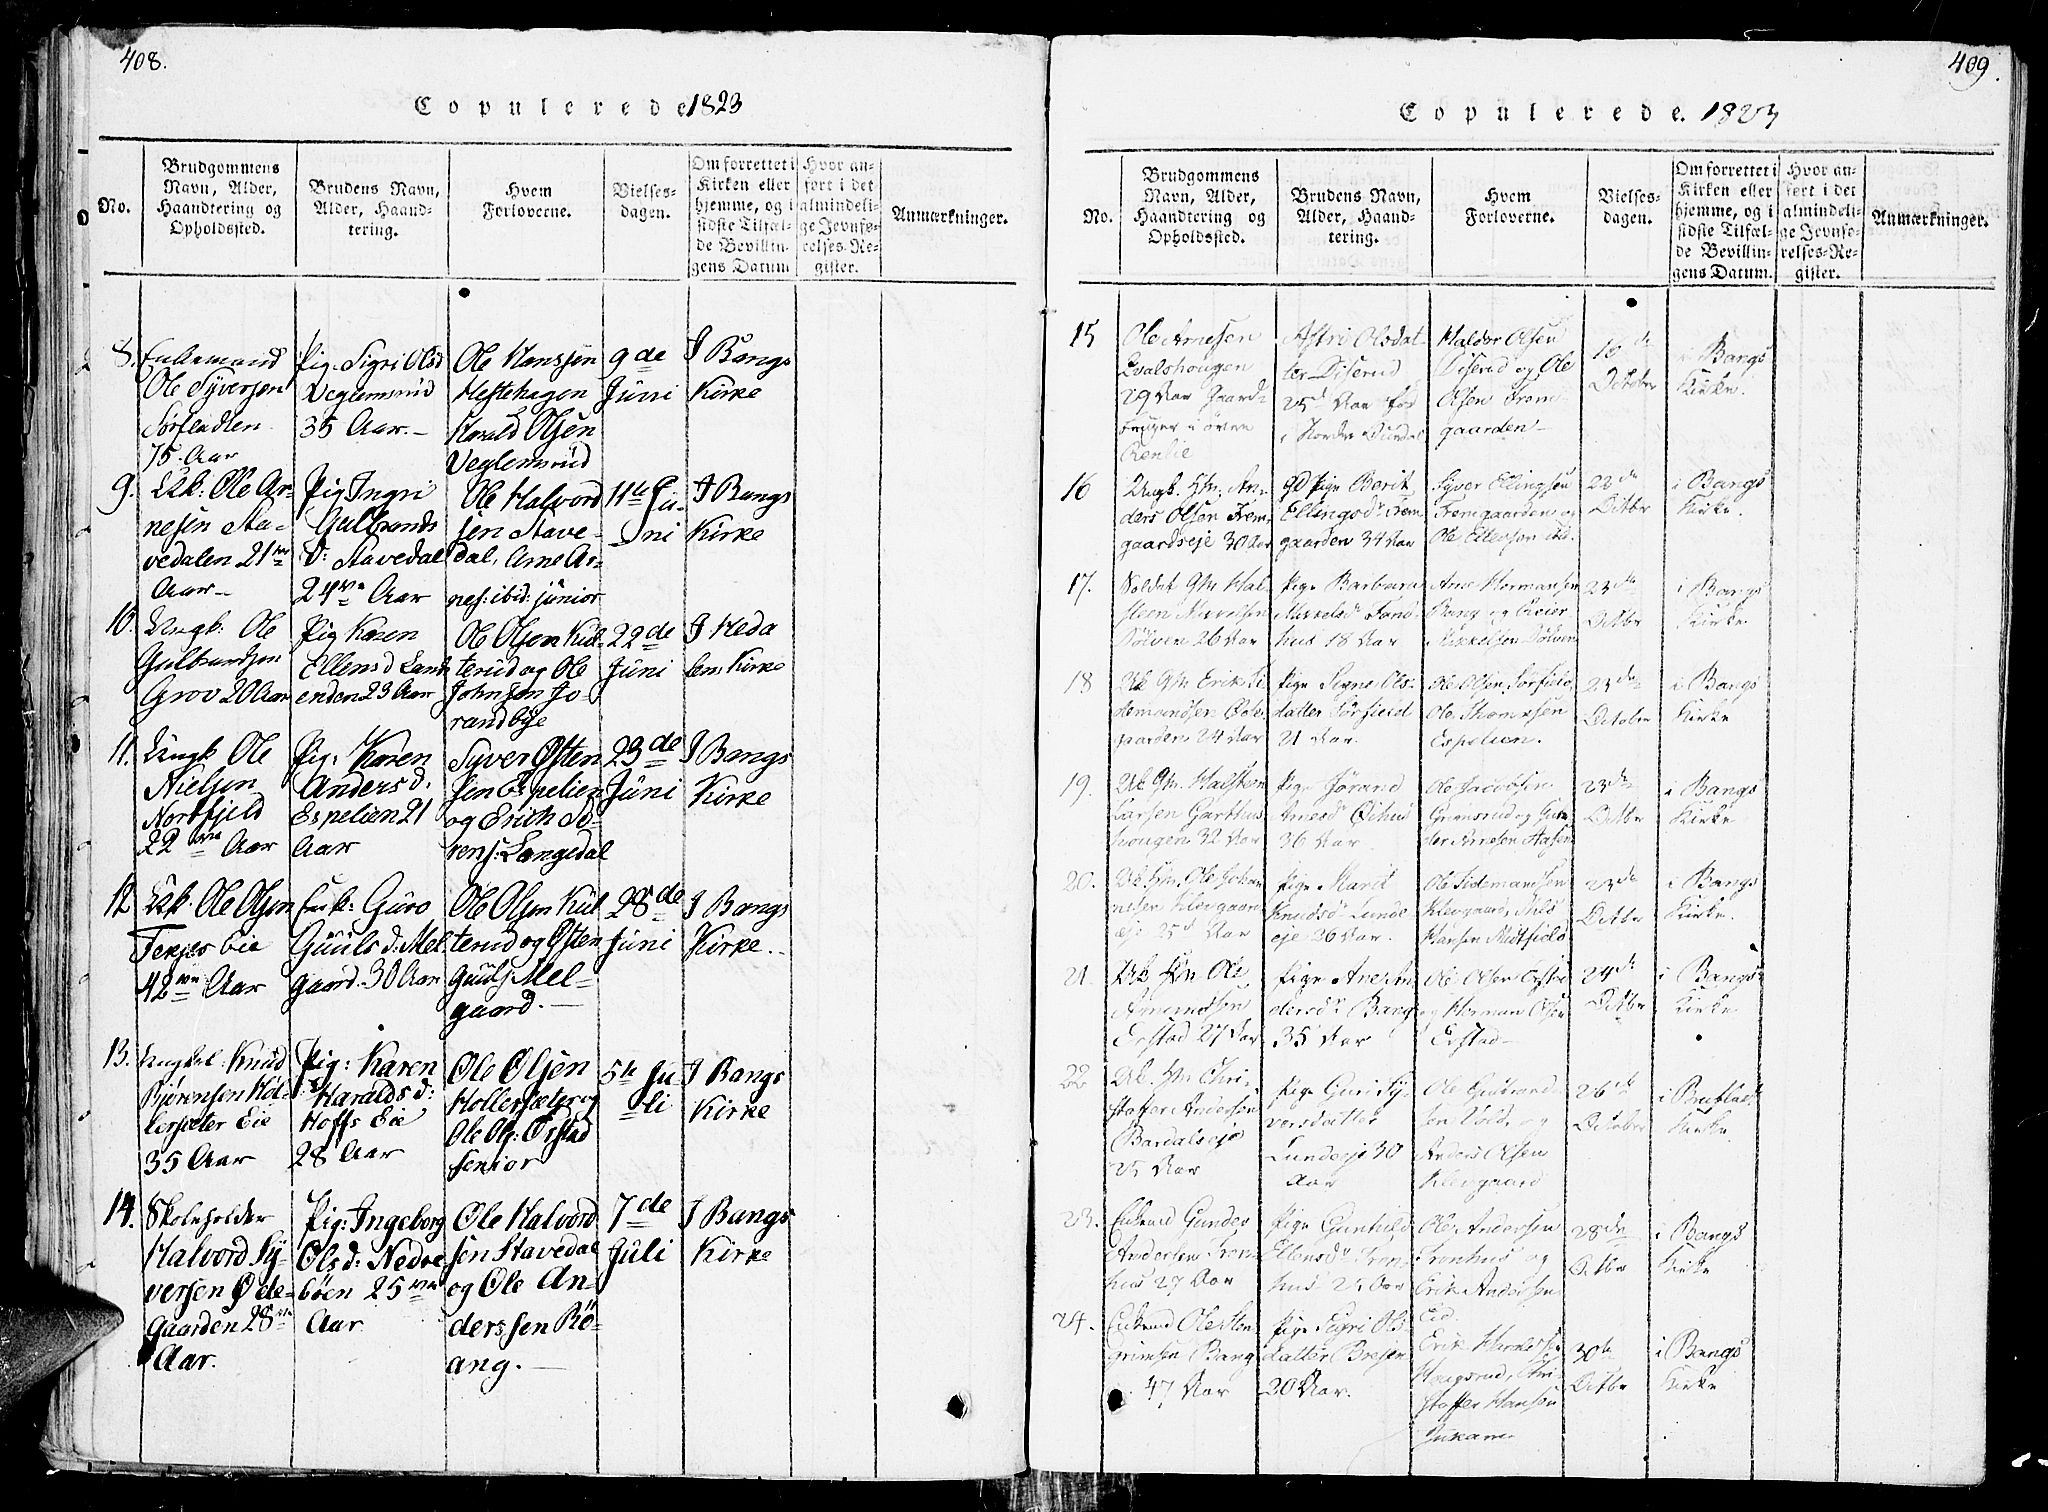 408.
Copulerede 1823
No.
Brudgommens
Navn, Alder,
Haandtering og
Opholdssted.
Brudens Navn,
Alder, Haand-
tering.
Hvem
Forloverne.
Vielses-
dagen.
Om forrettet i
Kirken eller
hjemme, og i
sidste Tilfæl-
de Bevillin-
gens Datum
Hvor an-
ført i det
almindeli-
ge Jevnfø-
relses-Re-
gister.
Anmærkninger.
8.
Enkemand
Ole Syversen
75 Aar
Pig. Sigri Olsd
Veglemsrud
35 Aar.-
Ole Hanssen
Hestehagen
Harald Olsen
Veglemsrud
9de
Juni
I Bangs
Kirke
9.
Ole Ar-
nesen Sta-
vedalen 21
Aar-
Pig Ingri
Gulbrands
D: Stavedal
24 Aar
Ole Halvord
sen Stave-
dal, Arne Ar-
nes: ibid: junior
11te Ju-
ni
I Bangs
Kirke
10.
Ungk: Ole
Gulbrandsen
Grov 20 Aar
Pig Karen
Ellens d
enden 23 Aar
Ole Olsen Kul
terud og Ole
Johnsen Jo-
randbye
22de
Juni
I Heda
lens Kirke
11.
Ungk Ole
Nielsen
Nordfjeld
22 Aar
Pig: Karen
Anders d:
Espelien 21
Aar
Syver Østen
sen Espelien
og Erich So-
rens: Langedal
23de
Juni
I Bangs
Kirke
12
Ole Olsen
Eie
42 Aar
Enk: Guro
Guuls d: Mel
gaard. 30 Aar
Ole Olsen Kul
terud og Østen
Guuls Mel-
gaard.-
28de
Juni
I Bangs
Kirke.
13.
Ungkl: Knud
Bjørensen Hol-
lersæter Eie
35 Aar
Pig: Karen
Haralds d:
Hoffs Eie
28 Aar
Ole Olsen
Hollersæter og
Ole Ols: Ørstad
senior
5te Ju
li
I Bangs
Kirke
14.
Skoleholder
Halvord Sy-
versen Øde-
gaarden 28
Aar.
Pig: Ingeborg
Ols d: Nedre
böen 25
Aar
Ole Halvord
sen Stavedal
og Ole An-
derssen Rö-
ang.-
7de
Juli
I Bangs
Kirke
409.
Copulerede. 1823
No.
Brudgommens
Navn, Alder,
Haandtering og
Opholdssted.
Brudens Navn,
Alder, Haand-
tering.
Hvem
Forloverne.
Vielses-
dagen.
Om forrettet i
Kirken eller
hjemme, og i
sidste Tilfæl-
de Bevillin-
gens Datum.
Hvor an-
ført i det
almindeli-
ge Jevnfø-
relses-Re-
gister.
Anmærkninger.
15
Ole Arnesen
29 Aar Gaard-
bruger i øvre
Renlie
Astri Olsdat-
ter Diserud
25 Aar
Haldor Olsen
Diserud og Ole
Olsen From
gaarden-
October
i Bangs
Kirke.
16
Ungk. An-
ders Olsen From
gaardseje 30 Aar
Pige Berit
Ellingsdr From
gaarden 34 Aar
Syver Ellingsen
Fromgaarden og
Ole Ellevsen ibd.
Octbr
i Bangs
Kirke.
17.
Soldat Hal
26 Aar
Pige Barbara
Mikkelsd
hus 18 Aar
Bang og
Mikkelsen
23de
Octbr
i Bangs
Kirke
18
Erik Ti
demandsen Øde-
gaarden 24 Aar
Pige Signe Ols-
datter Sørfjeld
21 Aar.
Ole Olsen Sørfield,
Ole Thomesen
Espelien.
23de
October
i Bangs
Kirke
19.
Larsen Garthus
hougen 32 Aar
Pige Jørand
Arnesdr
36 Aar
Ole Jacobsen
Grønsrud og Gun
der Arnesen
23de
Octbr
i Bangs
Kirke
20.
Ole Johan
nesen Klevgaard
eje 25 Aar
Pige Marit
Knudsdr Lunde
eje 26 Aar.
Ole Tidemandsen
Klevgaard, Nils
Hansen Midtfield
23de
Octbr
i Bangs
Kirke.
21.
Ole
Erstad 27 Aar
Pige Ane An
dersdr Bang
35 Aar
Ole Olsen
og Herman Olsen
Erstad-
24de
Octbr
i Bangs
Kirke
22
Chri-
stoffer Andersen
Bardalseje
25 Aar
Pige Guri Sy-
versdatter
Lundeeje 30
Aar
Ole Gulbrand
sen Vold, og
Anders Olsen
Klevgaard
26de
October
Kirke.
23.
Enkmd Gunder
Andersen Fron-
hus 27 Aar
Pige Gunhild
Ellensdr Fron
hus 25 Aar
Ole Andersen
Fronhus og
Erik Andersen
Eid.
28de
Octbr
i Bangs
Kirke
24.
Enkmd Ole
grimsen Bang
47 Aar
Pige Sigri Ols
datter Bresen
20 Aar.
Erik Haraldsen
Haugsrud, Chri-
stoffer Hansen
30te
Octbr
i Bangs
Kirke